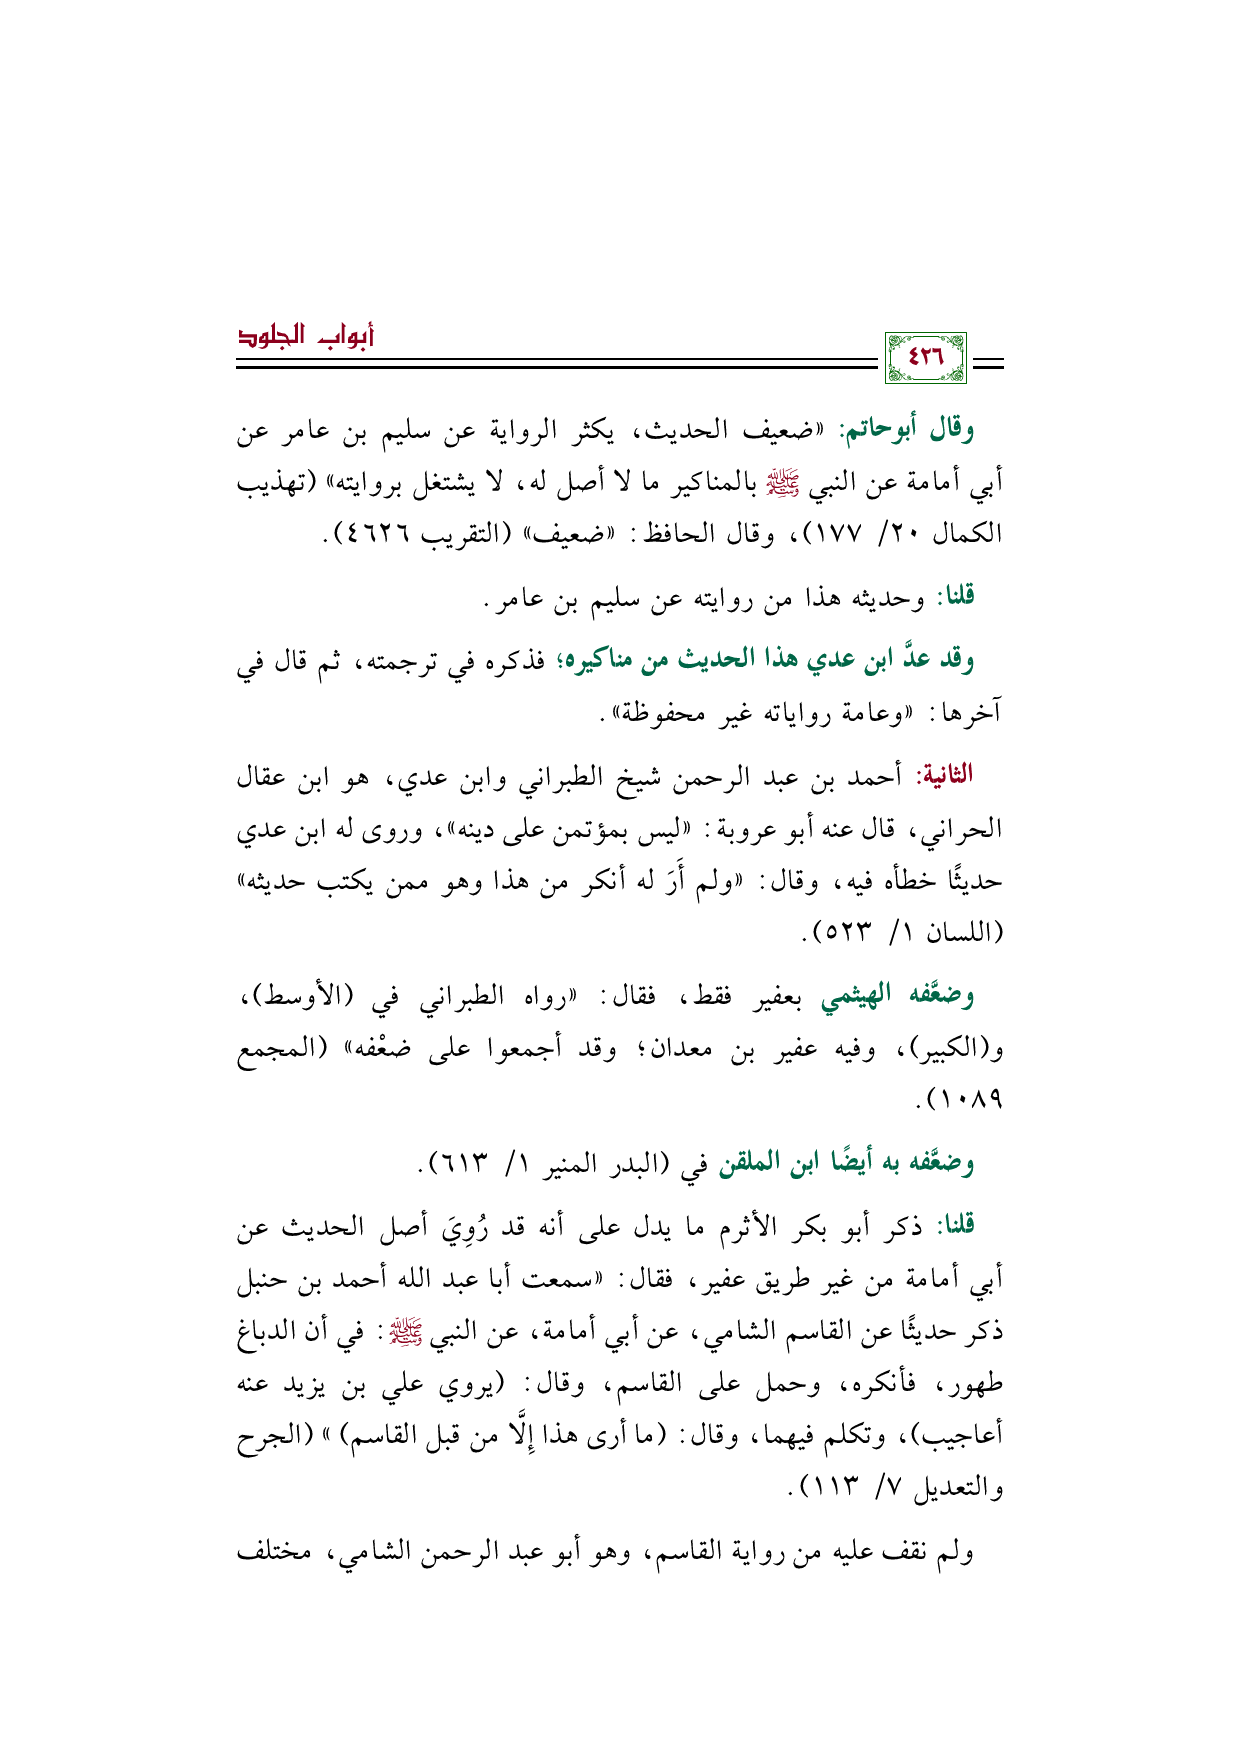 أبواب الجلود
٤٢٦
وقال أبوحاتم: «ضعيف الحديث، يكثر الرواية عن سليم بن عامر عن
أبي أمامة عن النبي ﷺ بالمناكير ما لا أصل له، لا يشتغل بروايته» (تهذيب
الكمال ٢٠/ ١٧٧)، وقال الحافظ: «ضعيف» (التقريب ٤٦٢٦).
قلنا: وحديثه هذا من روايته عن سليم بن عامر.
وقد عدَّ ابن عدي هذا الحديث من مناكيره؛ فذكره في ترجمته، ثم قال في
آخرها: «وعامة رواياته غير محفوظة».
الثانية: أحمد بن عبد الرحمن شيخ الطبراني وابن عدي، هو ابن عقال
الحراني، قال عنه أبو عروبة: «ليس بمؤتمن على دينه»، وروى له ابن عدي
حديثًا خطأه فيه، وقال: «ولم أَرَ له أنكر من هذا وهو ممن يكتب حديثه»
(اللسان ١/ ٥٢٣).
وضعَّفه الهيثمي بعفير فقط، فقال: «رواه الطبراني في (الأوسط)،
و(الكبير)، وفيه عفير بن معدان؛ وقد أجمعوا على ضعْفه» (المجمع
١٠٨٩).
وضعَّفه به أيضًا ابن الملقن في (البدر المنير ١/ ٦١٣).
قلنا: ذكر أبو بكر الأثرم ما يدل على أنه قد رُوِيَ أصل الحديث عن
أبي أمامة من غير طريق عفير، فقال: «سمعت أبا عبد الله أحمد بن حنبل
ذكر حديثًا عن القاسم الشامي، عن أبي أمامة، عن النبي ﷺ: في أن الدباغ
طهور، فأنكره، وحمل على القاسم، وقال: (يروي علي بن يزيد عنه
أعاجيب)، وتكلم فيهما، وقال: (ما أرى هذا إِلَّا من قبل القاسم) » (الجرح
والتعديل ٧/ ١١٣).
ولم نقف عليه من رواية القاسم، وهو أبو عبد الرحمن الشامي، مختلف